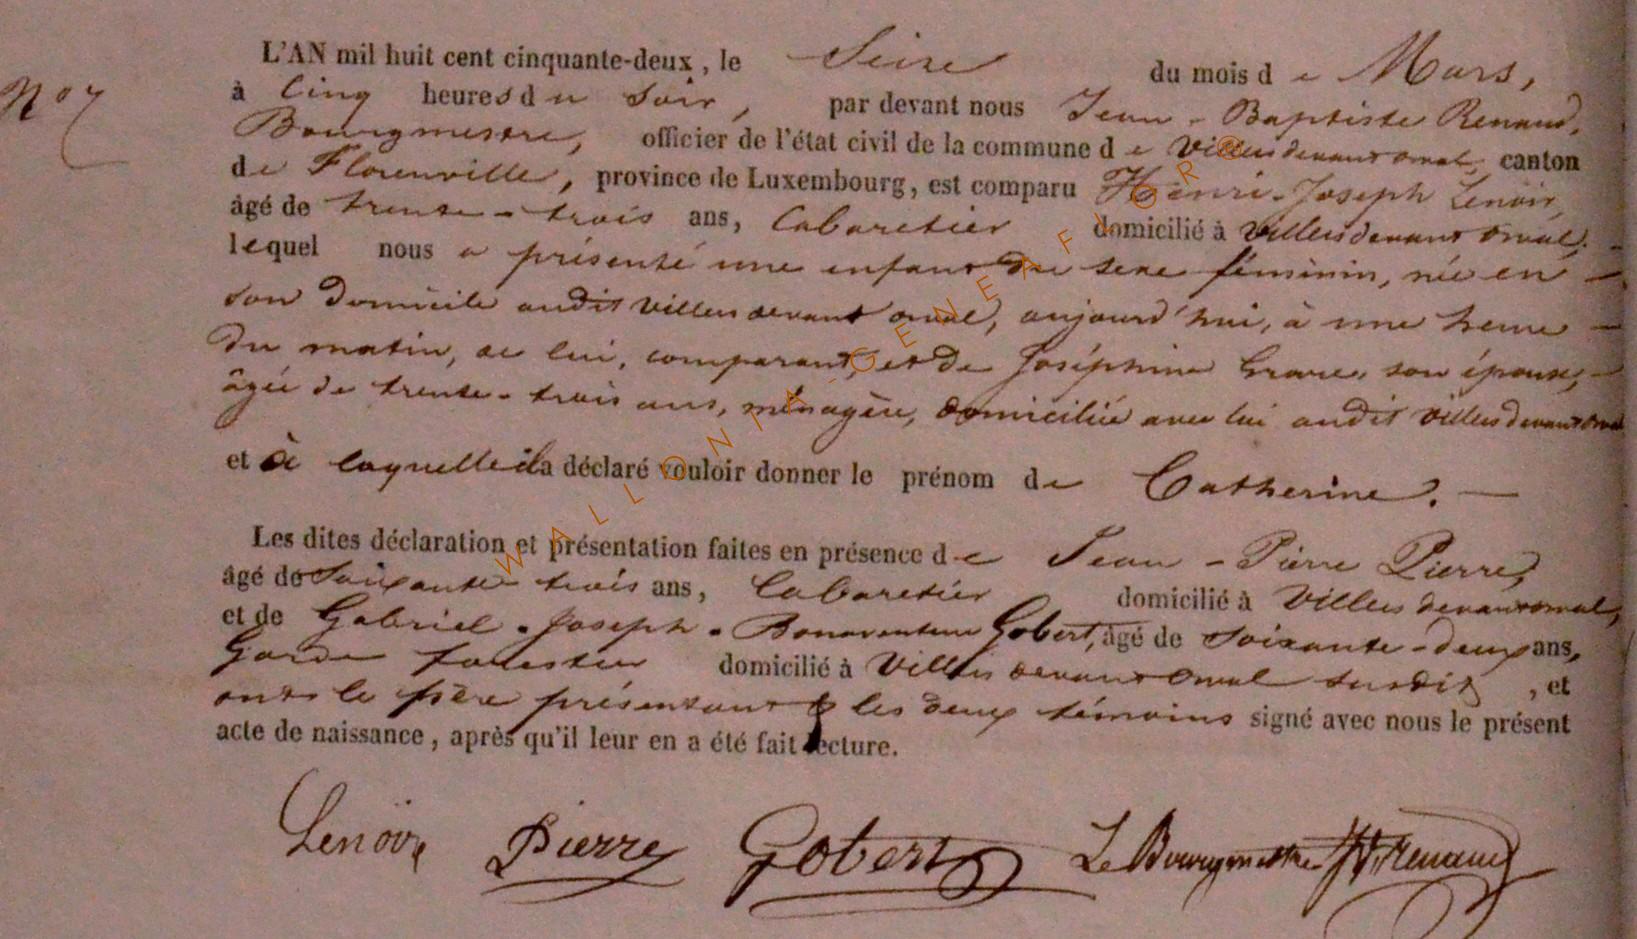 N° 7
L'AN mil huit cent cinquante-deux, le Seize du mois de Mars,
à Cinq heures du soir, par devant nous Jean-Baptiste Renaud,
Bourgmestre, officier de l'état civil de la commune de Villersdevantorval, canton
de Florenville, province de Luxembourg, est comparu Henri-Joseph Lenoir,
âgé de trente-trois ans, Cabaretier domicilié à Villersdevant orval,
lequel nous a présenté une enfant du sexe féminin, née en
son domicile audit Villers devant orval, aujourd'hui, à une heure
du matin, de lui, comparant, et de Joséphine son épouse,
âgée de trente-trois ans, ménagère, domiciliée avec lui audit villersdevantorval
et à laquelle il a déclaré vouloir donner le prénom de Catherine.
Les dites déclaration et présentation faites en présence de Jean-Pierre Pierre,
âgé de Soixante-trois ans, Cabaretier domicilié à Villers devantorval,
et de Gabriel-Joseph-Bonaventure Gobert, âgé de soixante-deux ans,
Garde forestier domicilié à Villers devant Orval susdit, et
ont le père présentant & les deux témoins signé avec nous le présent
acte de naissance, après qu'il leur en a été fait lecture.
Lenoir Pierre Gobert Le Bourgmestre JB Renaud
WALLONIA-GENEAFLOR®